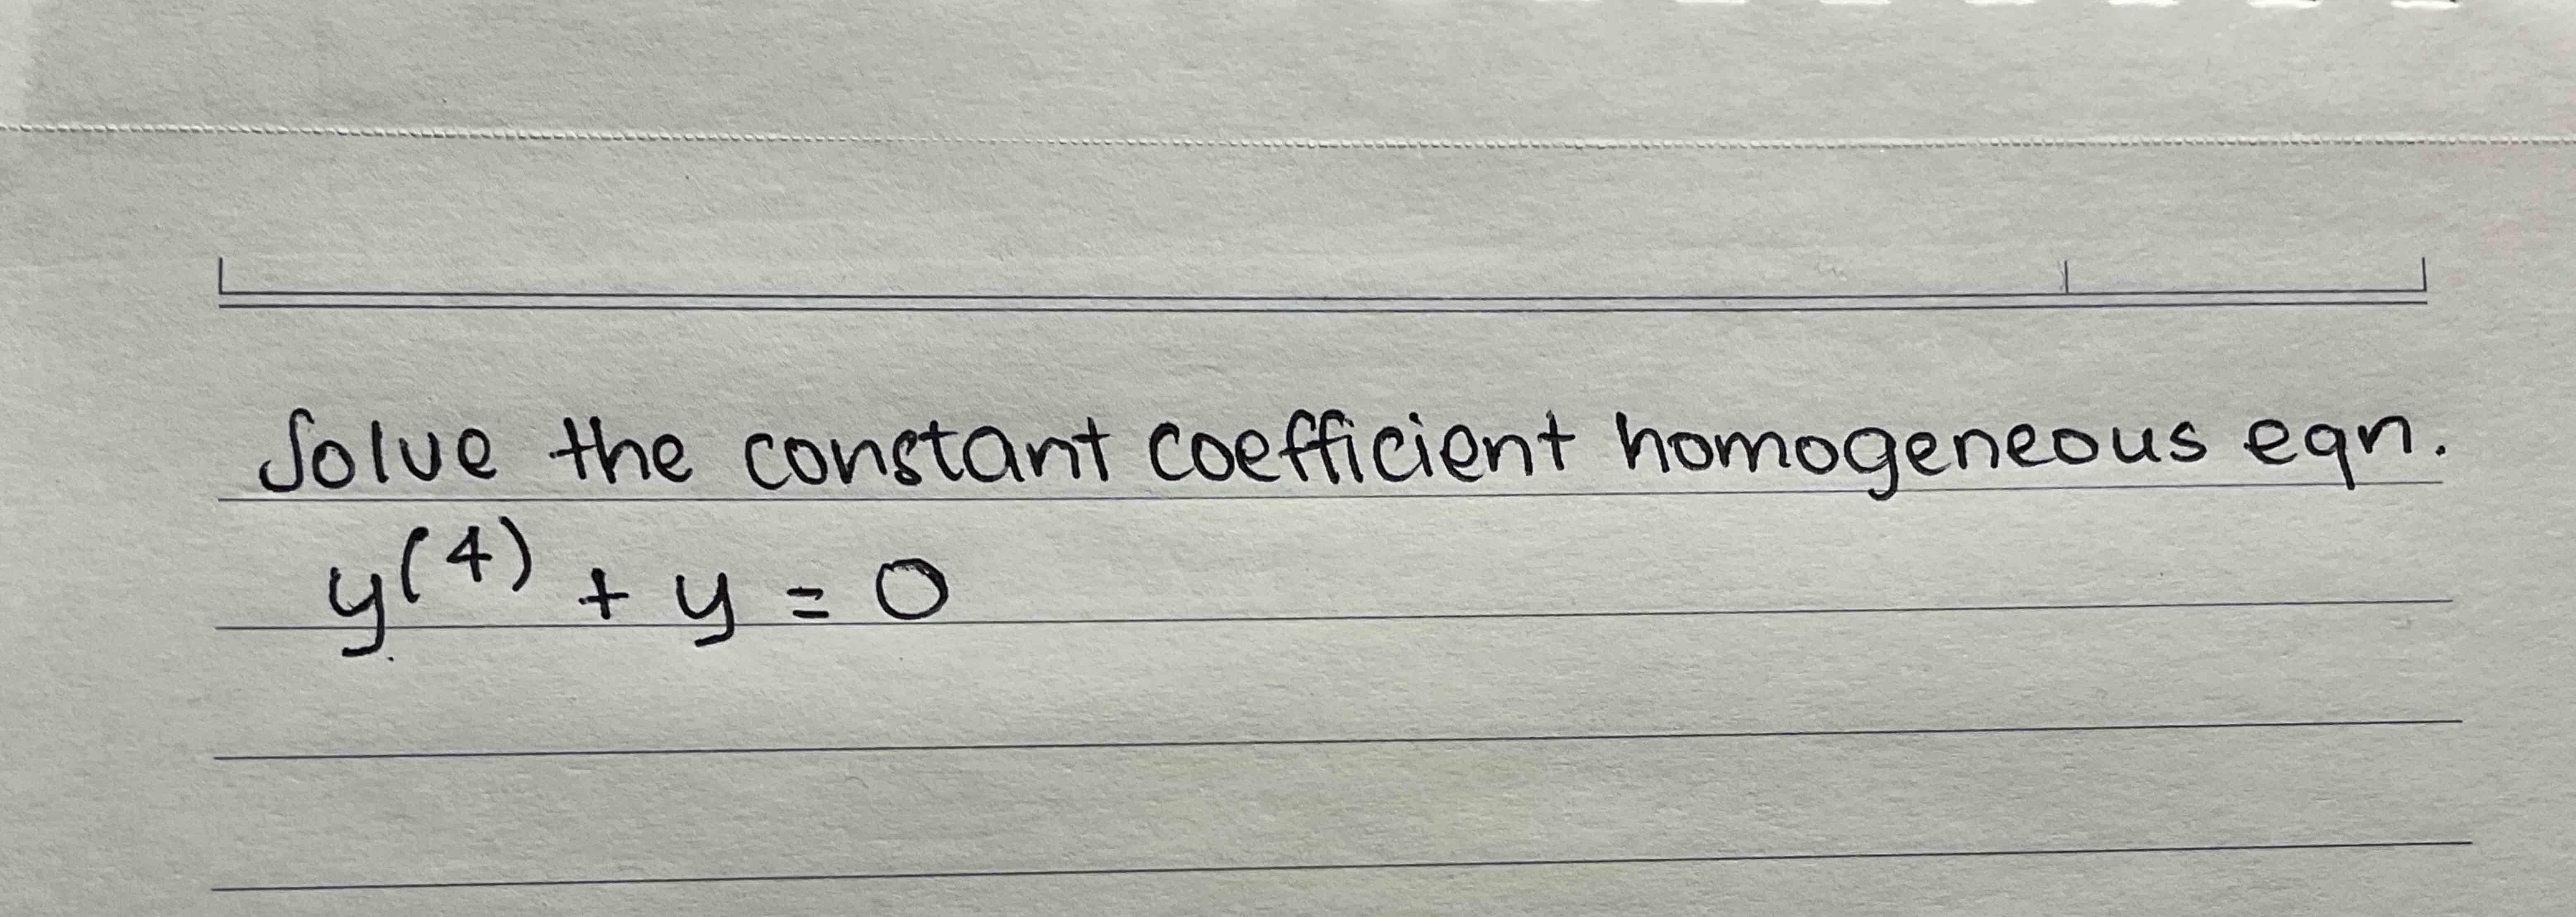 Solve the constant coefficient homogeneous eqn.
y⁽⁴⁾ + y = 0